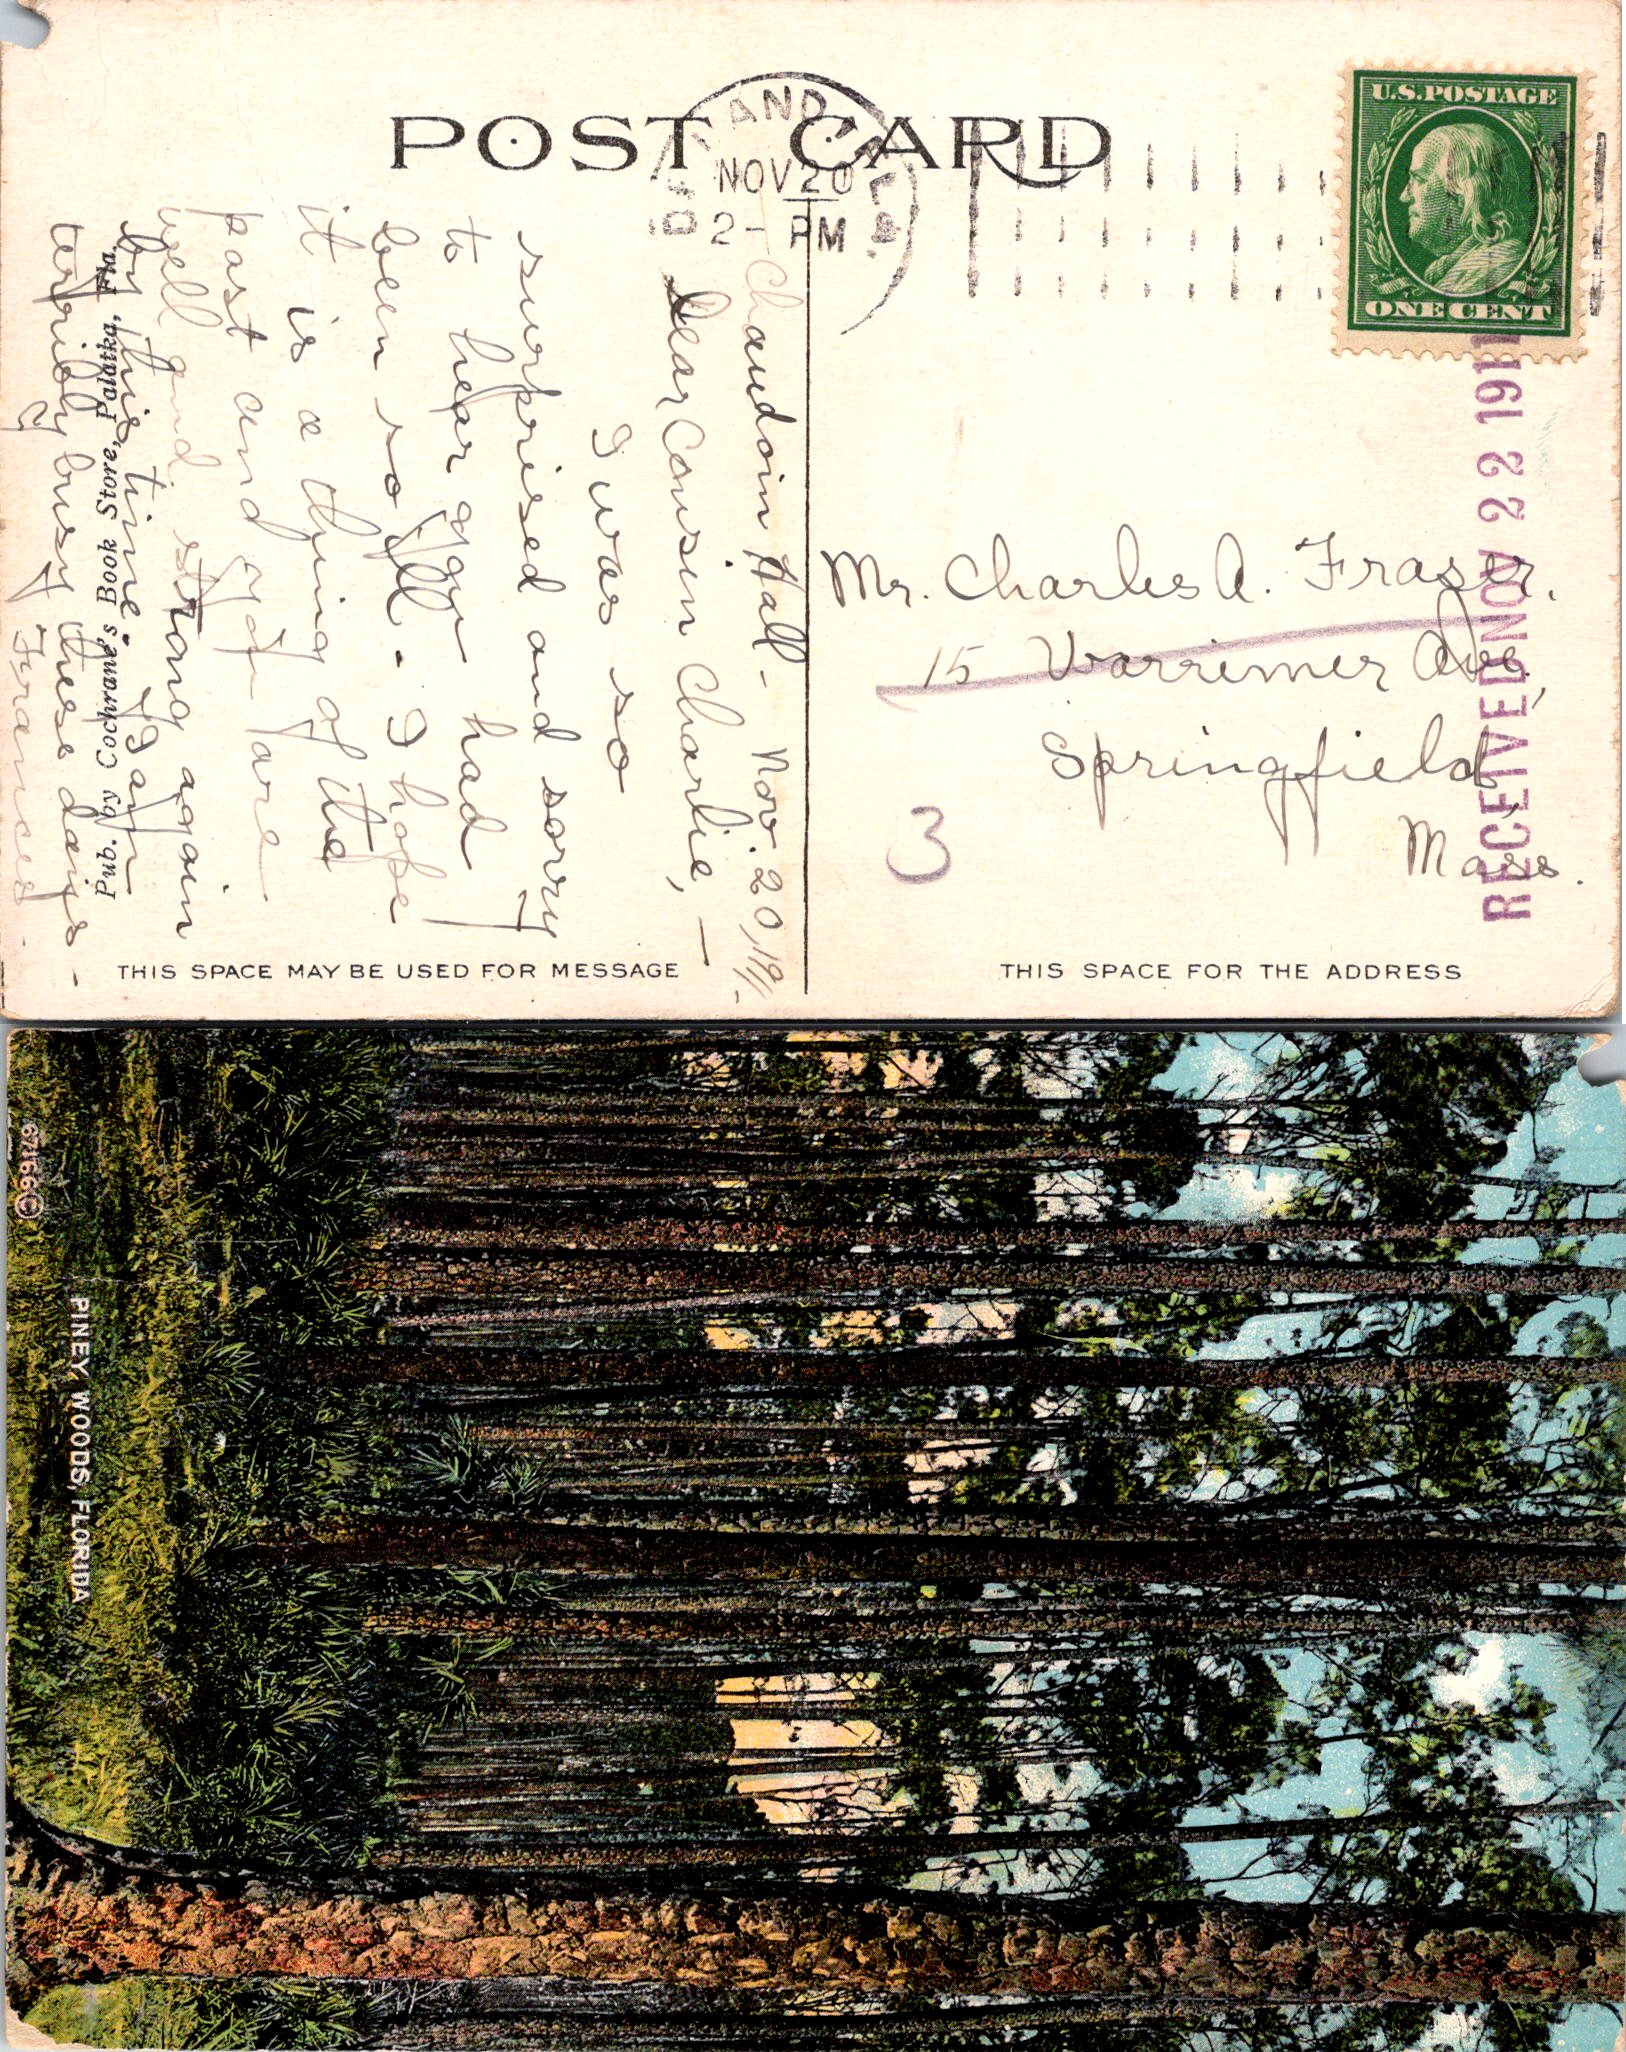 POST CARD
NOV 20
2 - PM
U.S. POSTAGE
ONE CENT
Chaudoin Hall - Nov. 20, 1911-
Dear Cousin Charlie, -
I was so
surprised and sorry
to hear you had
been so ill. I hope
it is a thing of the
past and you are
well and strong again
by this time. I am
terribly busy these days -
Frances.
Pub. by Cochrane's Book Store, Palatka, Fla.
Mr. Charles A. Fraser,
15 Warrimer Ave,
Springfield,
Mass.
3
RECEIVED NOV 22 1911
THIS SPACE MAY BE USED FOR MESSAGE
THIS SPACE FOR THE ADDRESS
PINEY WOODS, FLORIDA